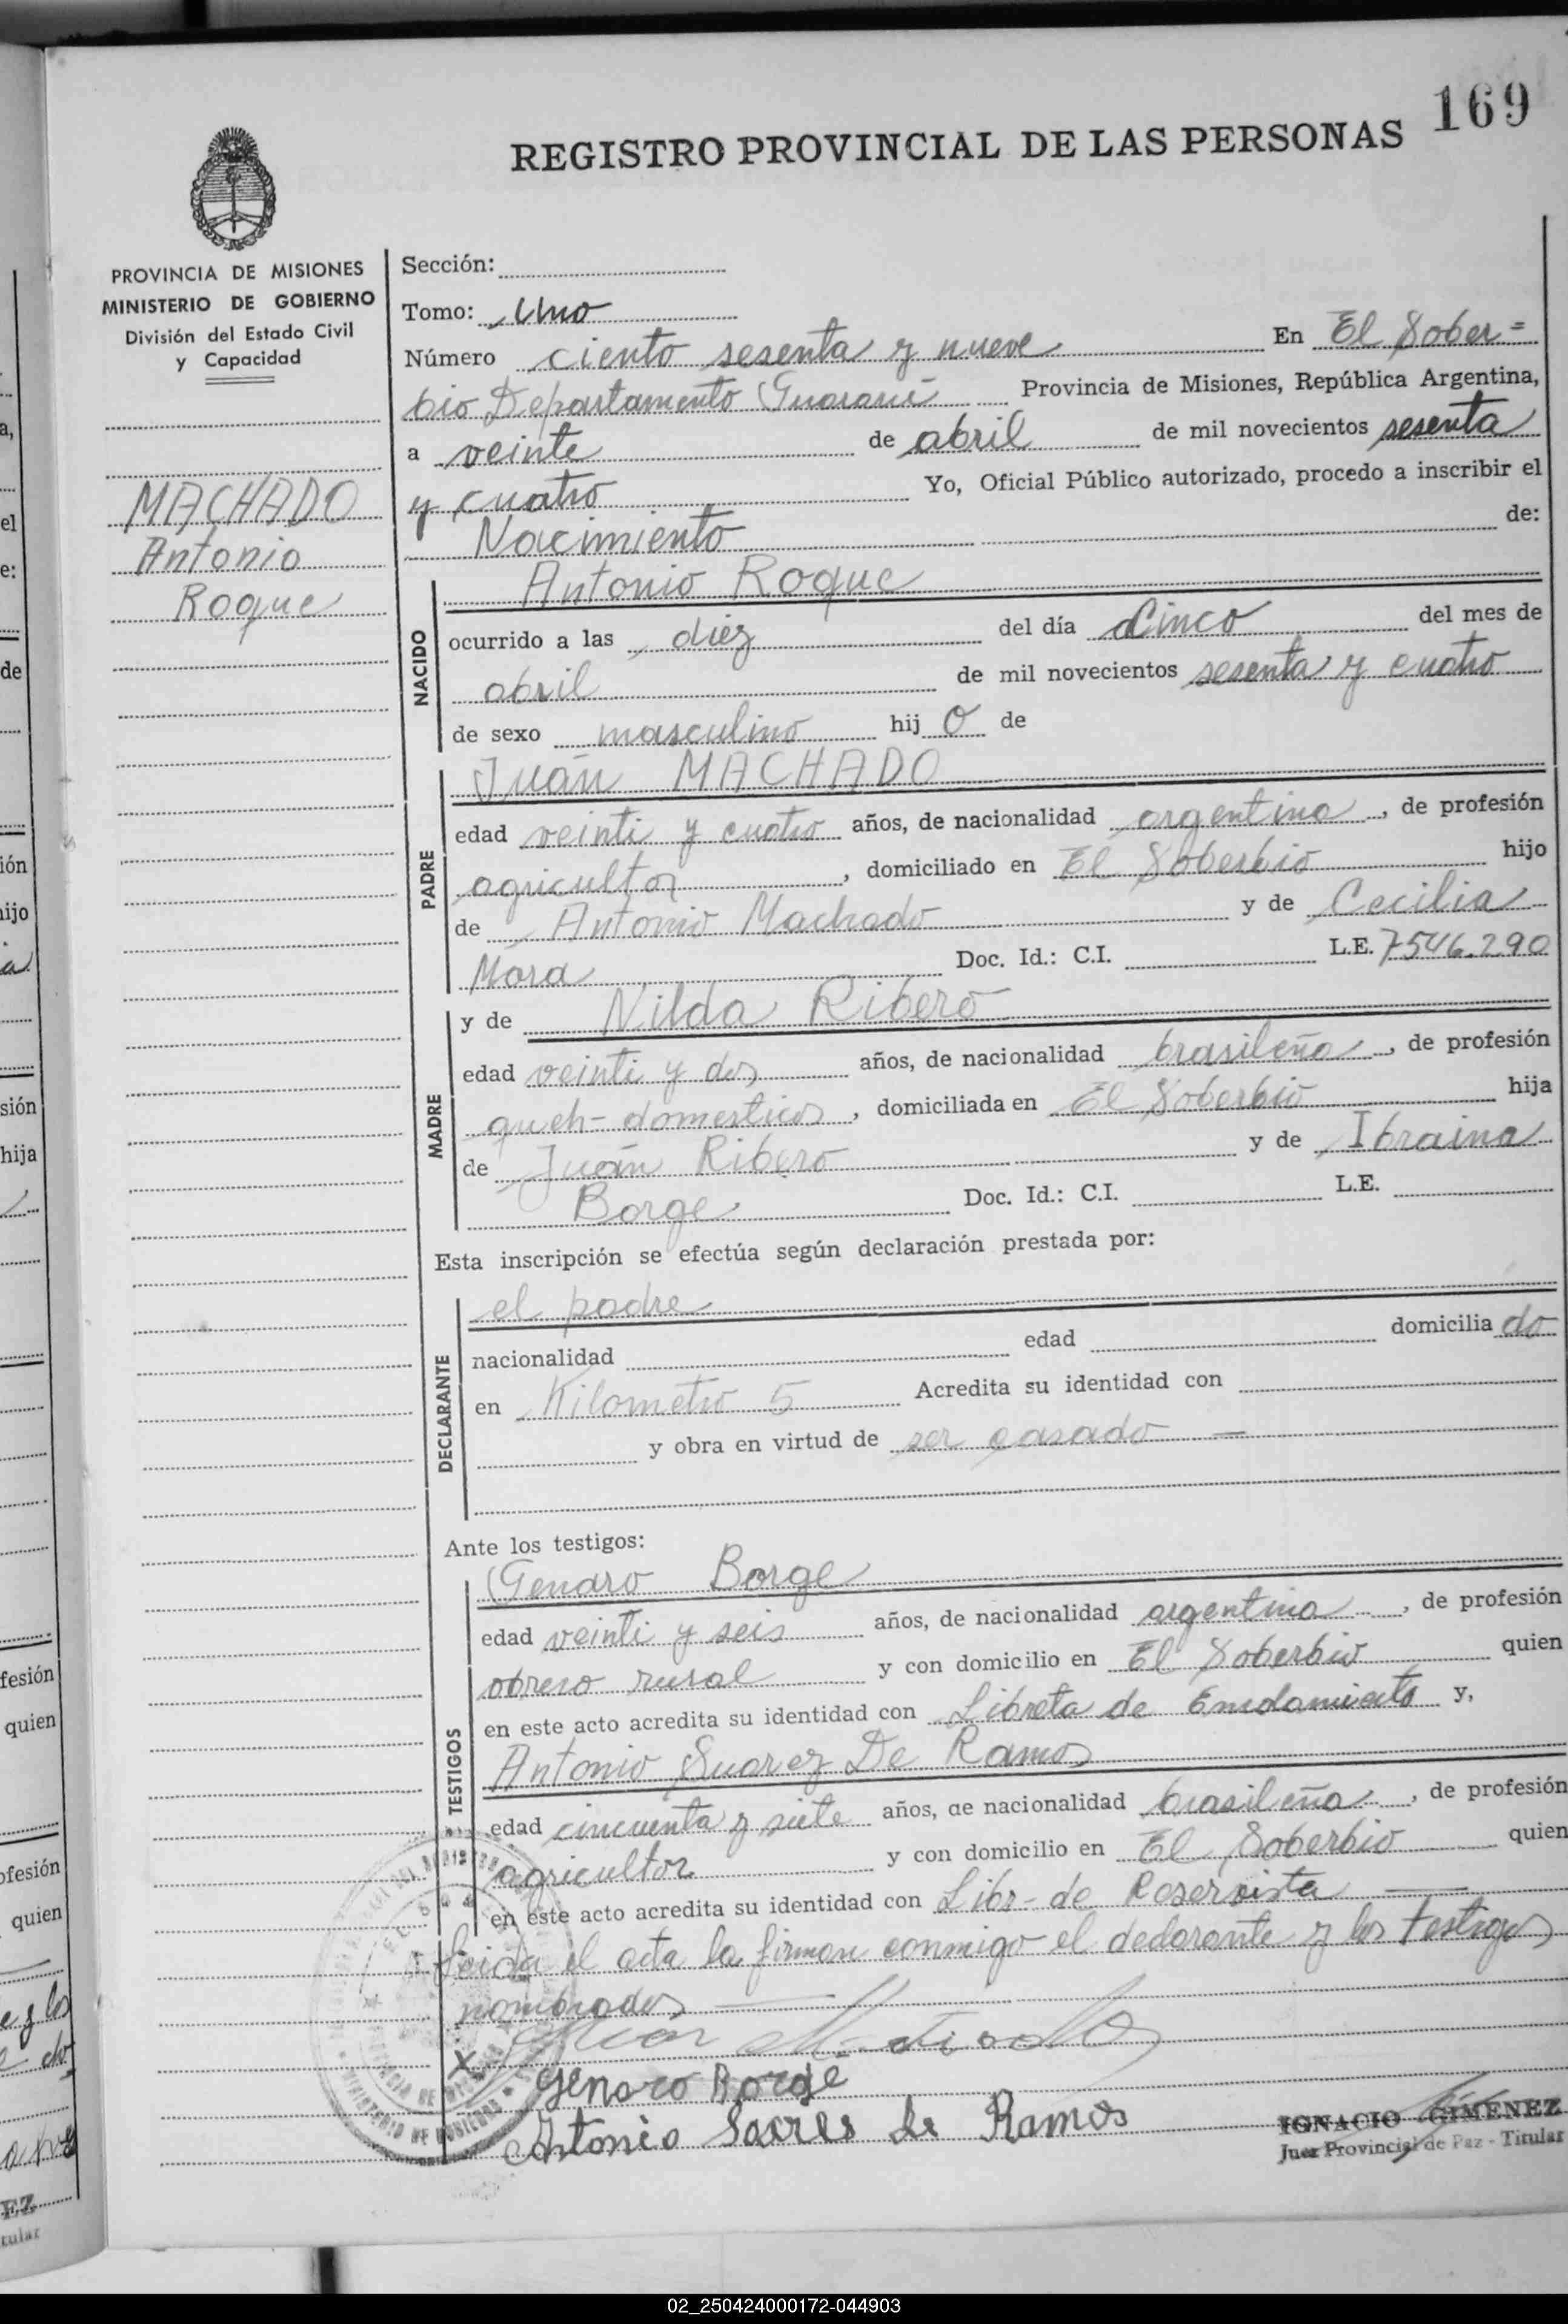 169
REGISTRO PROVINCIAL DE LAS PERSONAS
PROVINCIA DE MISIONES
MINISTERIO DE GOBIERNO
División del Estado Civil
y Capacidad
MACHADO
Antonio
Roque
Sección:
Tomo: Uno
Número ciento sesenta y nueve En El Sober=
bio Departamento Guaraní Provincia de Misiones, República Argentina,
a veinte de abril de mil novecientos sesenta
y cuatro Yo, Oficial Público autorizado, procedo a inscribir el
Nacimiento de:
NACIDO
Antonio Roque
ocurrido a las diez del día cinco del mes de
abril de mil novecientos sesenta y cuatro
de sexo masculino hijo de
PADRE
Juán MACHADO
edad veinti y cuatro años, de nacionalidad argentina, de profesión
agricultor, domiciliado en El Soberbio hijo
de Antonio Machado y de Cecilia
Mora Doc. Id.: C.I. L.E. 7546.290
MADRE
y de Nilda Ribero
edad veinti y dos años, de nacionalidad brasileña, de profesión
queh-domesticos, domiciliada en El Soberbio hija
de Juán Ribero y de Ibraina
Borge Doc. Id.: C.I. L.E.
Esta inscripción se efectúa según declaración prestada por:
DECLARANTE
el padre
nacionalidad edad domiciliado
en Kilometro 5 Acredita su identidad con
y obra en virtud de ser casado —
Ante los testigos:
TESTIGOS
Genaro Borge
edad veinti y seis años, de nacionalidad argentina, de profesión
obrero rural y con domicilio en El Soberbio quien
en este acto acredita su identidad con Libreta de y,
Antonio Suarez De Ramos
edad cincuenta y siete años, de nacionalidad brasileña, de profesión
agricultor y con domicilio en El Soberbio quien
en este acto acredita su identidad con Libr-de Reservista —
Leida el acta la firman conmigo el declarante y los testigos
nombrados —
X
Genaro Borge
Antonio Soares de Ramos
IGNACIO GIMENEZ
Juez Provincial de Paz - Titular
02_250424000172-044903